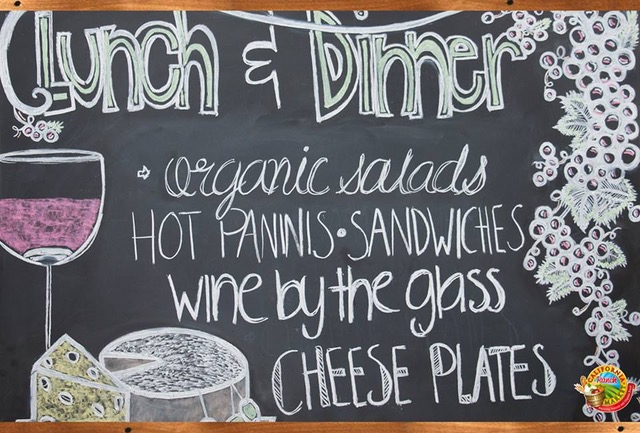 Lunch & Dinner
organic salads
HOT PANINIS • SANDWICHES
wine by the glass
CHEESE PLATES
CALIFORNIA
Ranch
MARKET